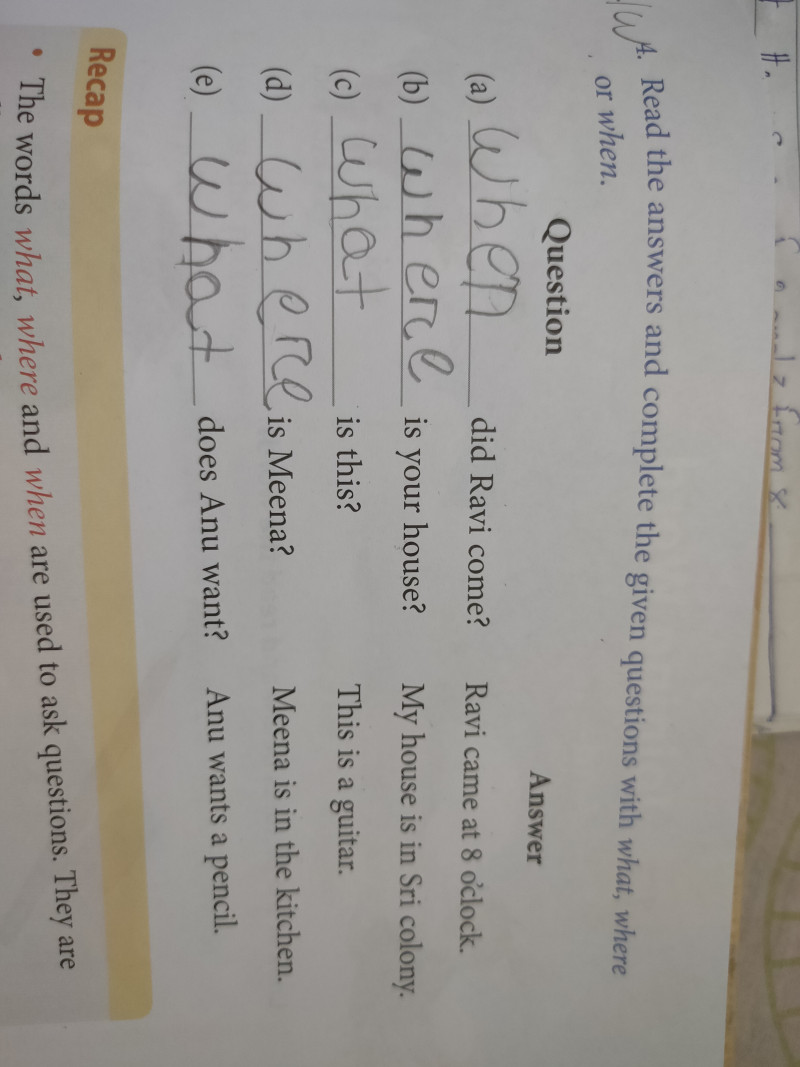 A. Read the answers and complete the given questions with what, where
or when.
Question Answer
(a) When did Ravi come? Ravi came at 8 o'clock.
(b) Where is your house? My house is in Sri colony.
(c) What is this? This is a guitar.
(d) Where is Meena? Meena is in the kitchen.
(e) What does Anu want? Anu wants a pencil.
Recap
• The words what, where and when are used to ask questions. They are